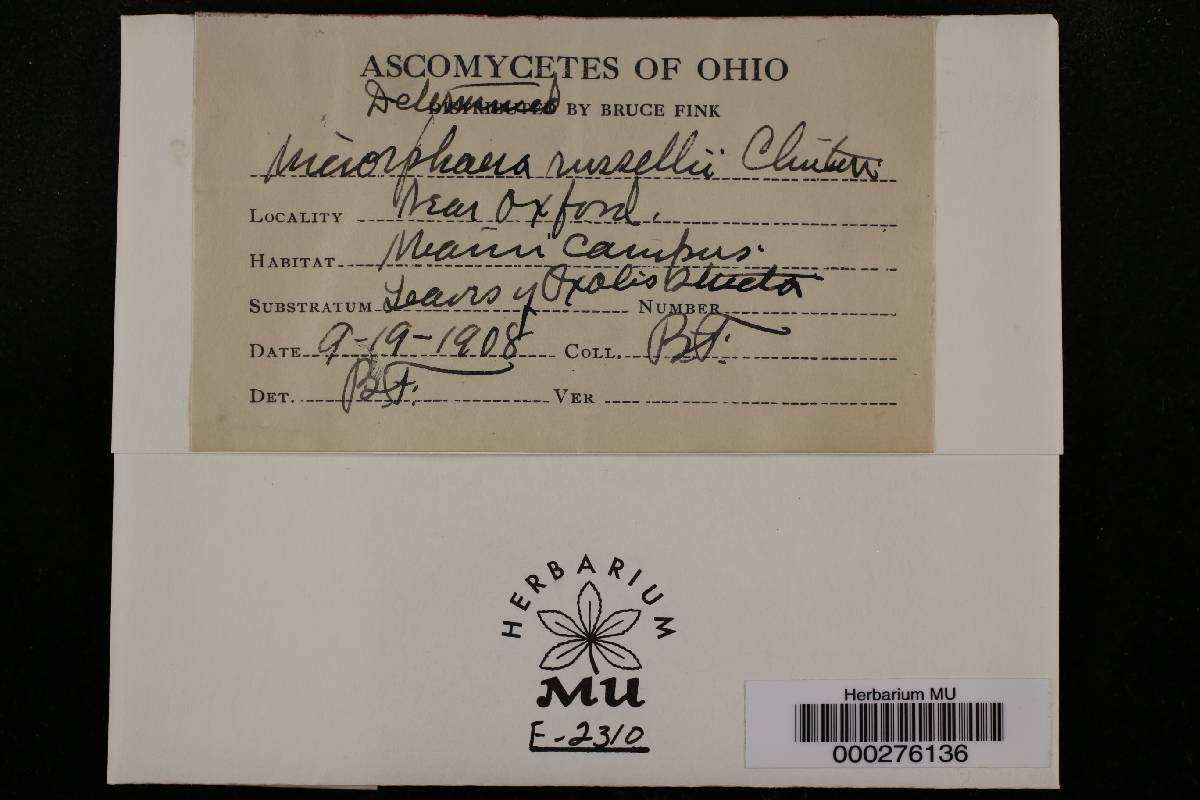 ASCOMYCETES OF OHIO
Determined BY BRUCE FINK
Microsphaera russellii Clinton
LOCALITY Near Oxford.
HABITAT Miami Campus.
SUBSTRATUM Leaves of Oxalis stricta NUMBER
DATE 9-19-1908 COLL. B.F.
DET. B.F. VER
HERBARIUM
MU
F-2310
Herbarium MU
000276136